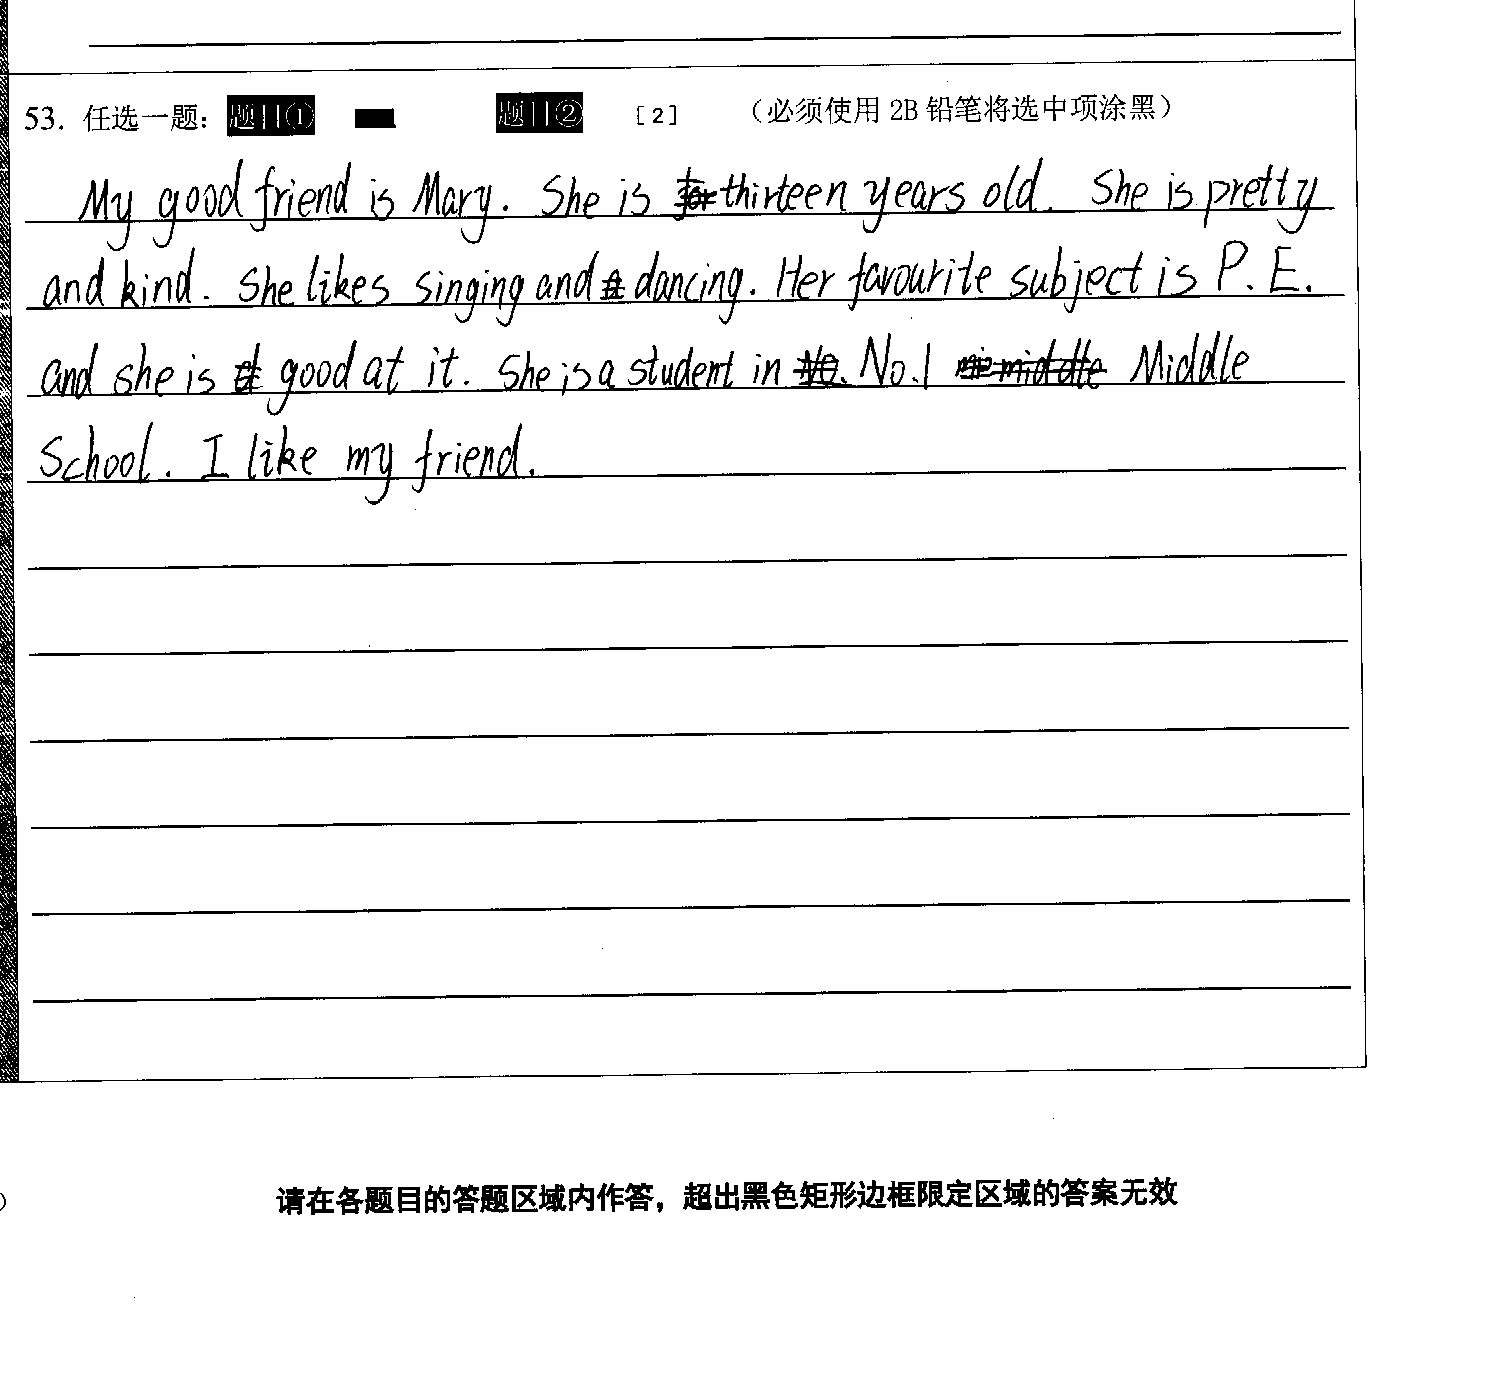 53. 任选一题: 题目① 题目② [2] (必须使用 2B 铅笔将选中项涂黑)
My good friend is Mary. She is thirteen years old. She is pretty
and kind. She likes singing and dancing. Her favourite subject is P.E.
and she is good at it. She is a student in No.1 Middle
School. I like my friend.
请在各题目的答题区域内作答，超出黑色矩形边框限定区域的答案无效